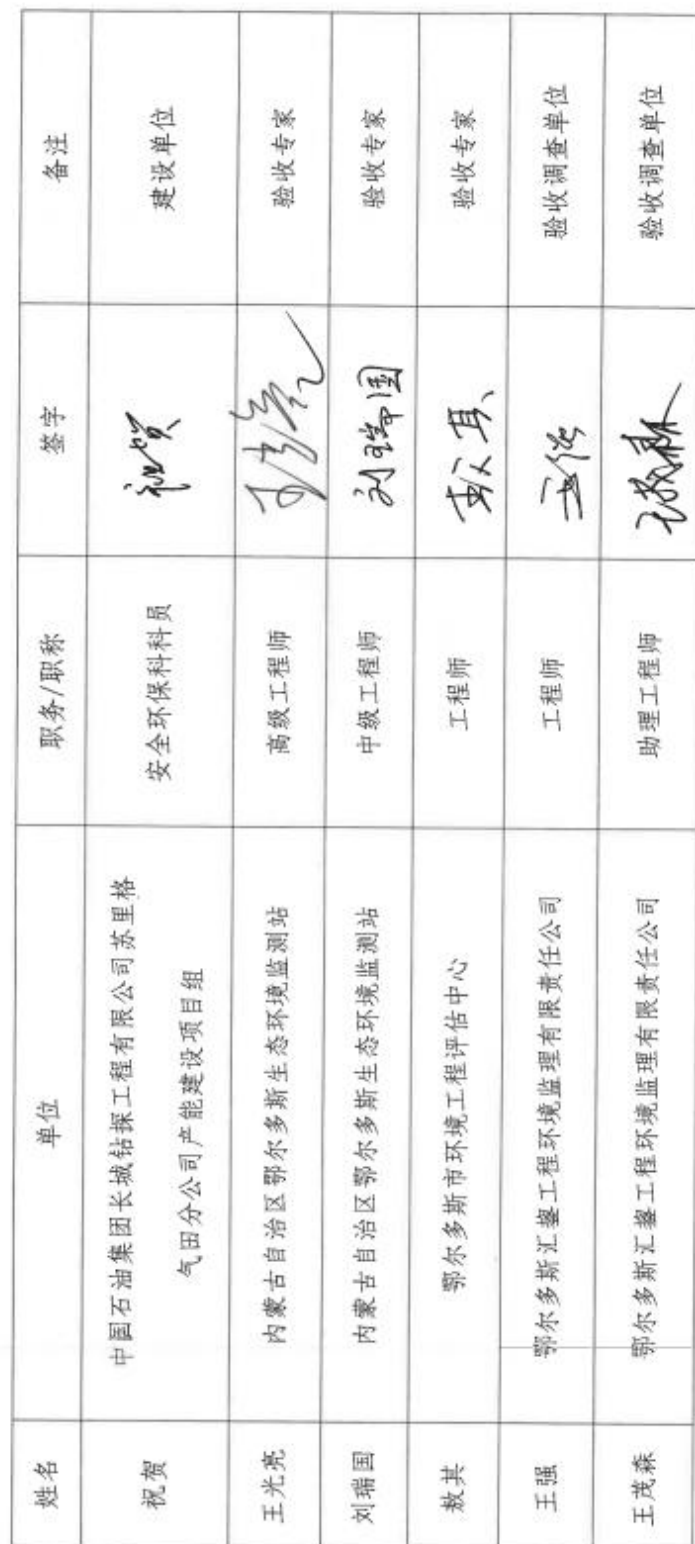 姓名 单位 职务/职称 签字 备注
祝贺 中国石油集团长城钻探工程有限公司苏里格 安全环保科科员 祝贺 建设单位
气田分公司产能建设项目组
王光亮 内蒙古自治区鄂尔多斯生态环境监测站 高级工程师 王光亮 验收专家
刘瑞国 内蒙古自治区鄂尔多斯生态环境监测站 中级工程师 刘瑞国 验收专家
敖其 鄂尔多斯市环境工程评估中心 工程师 验收专家
王强 鄂尔多斯汇鋆工程环境监理有限责任公司 工程师 王强 验收调查单位
王茂森 鄂尔多斯汇鋆工程环境监理有限责任公司 助理工程师 王茂森 验收调查单位